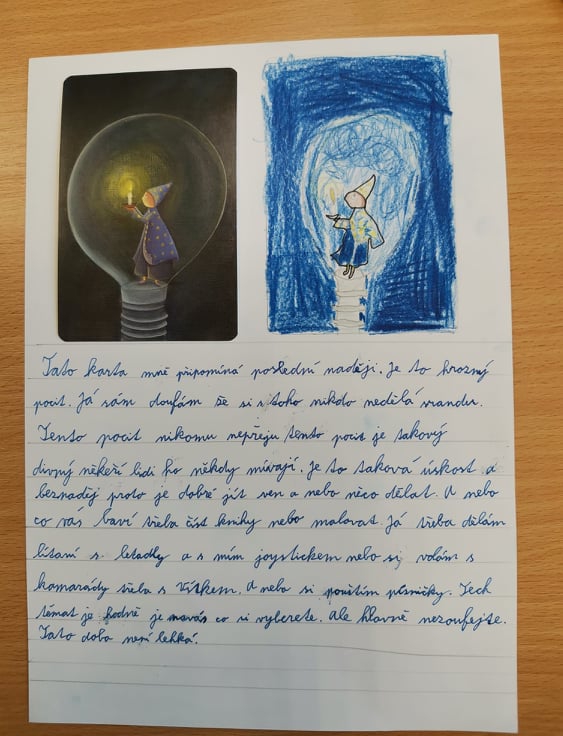 Tato karta mně připomíná poslední naději. Je to hrozný
pocit. Já sám doufám že si s toho nikdo nedělá srandu.
Tento pocit nikomu nepřeju tento pocit je takový
divný někeří lidi ho někdy mívají. Je to taková úskost a
beznaděj proto je dobré jít ven a nebo něco dělat. A nebo
co vás baví třeba číst knihy nebo malovat. Já třeba dělám
lítaní s letadly a s mím joystickem nebo si volám s
kamarády třeba s Vítkem. A nebo si pouštím písničky. Těch
témat je hodně je na vás co si vyberete. Ale hlavně nezoufejte.
Tato doba není lehká.